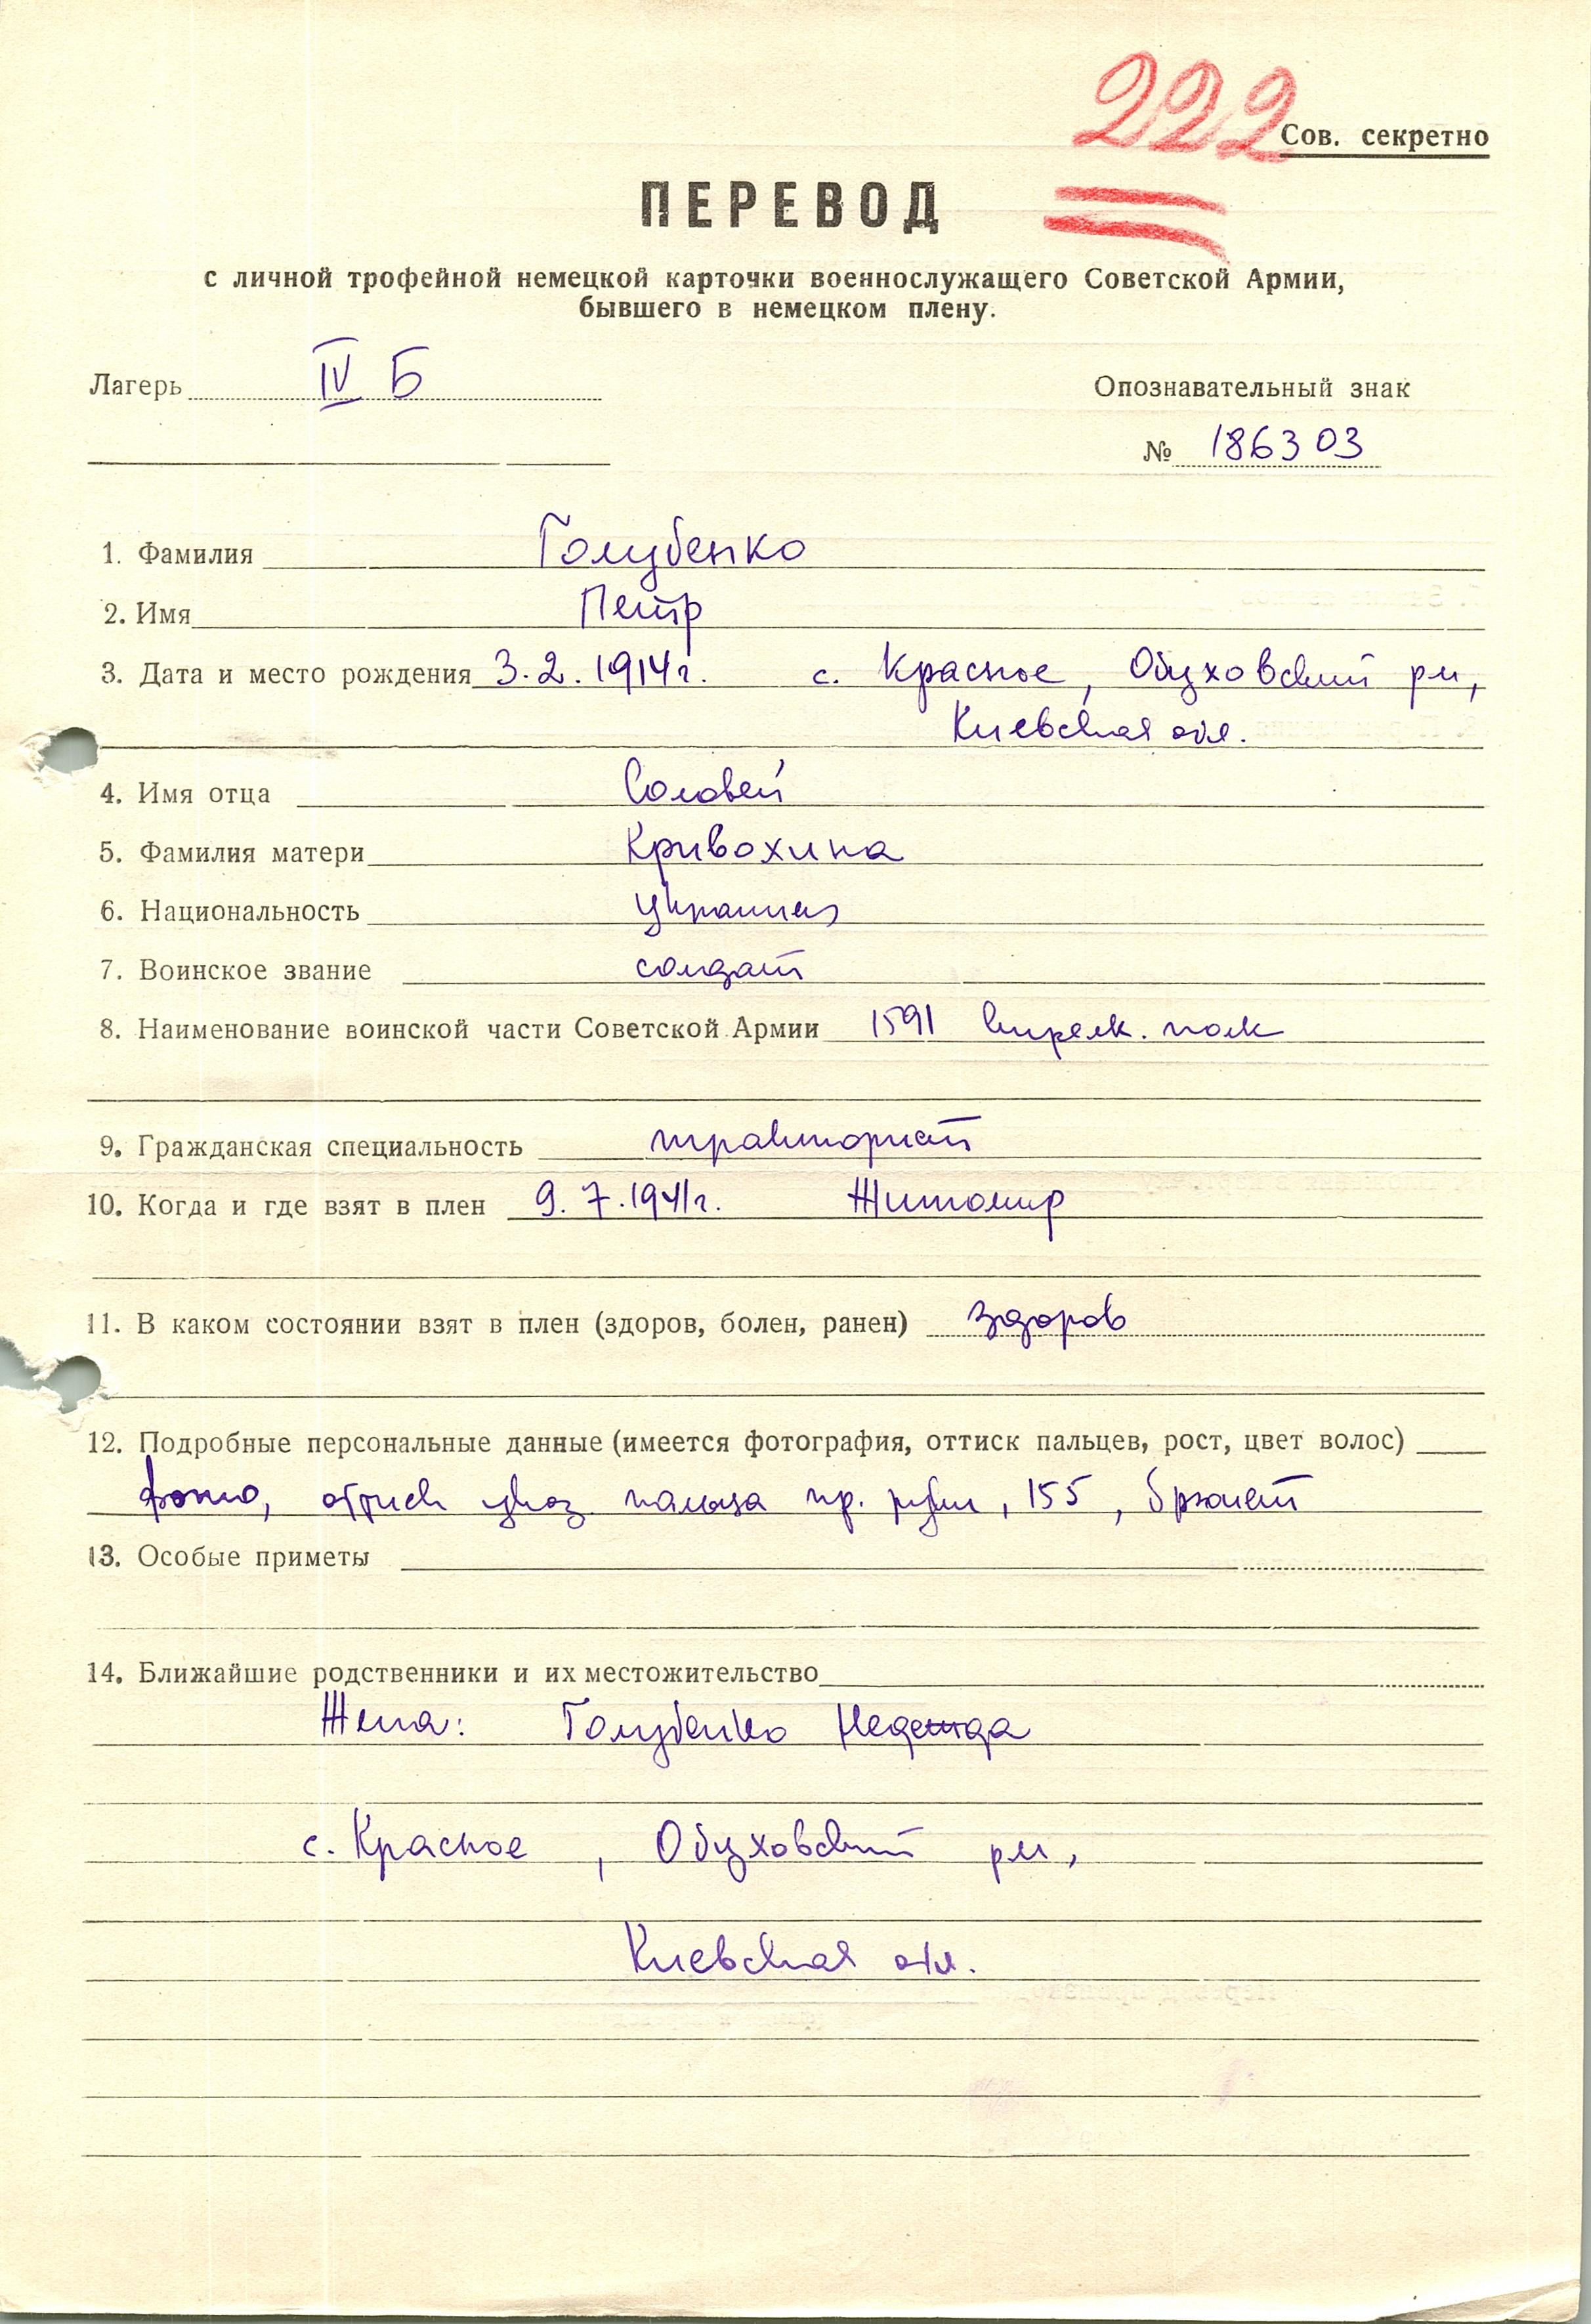 222
Сов. секретно
ПЕРЕВОД
с личной трофейной немецкой карточки военнослужащего Советской Армии,
бывшего в немецком плену.
Лагерь IV Б
Опознавательный знак
№ 186303
1. Фамилия Голубенко
2. Имя Петр
3. Дата и место рождения 3.2.1914г. с. Красное, Обуховский р-н,
Киевская обл.
4. Имя отца Соловей
5. Фамилия матери Кривохина
6. Национальность украинец
7. Воинское звание солдат
8. Наименование воинской части Советской Армии 1591 стрелк. полк
9. Гражданская специальность тракторист
10. Когда и где взят в плен 9.7.1941г. Житомир
11. В каком состоянии взят в плен (здоров, болен, ранен) здоров
12. Подробные персональные данные (имеется фотография, оттиск пальцев, рост, цвет волос)
фото, отпеч указ. пальца пр. руки, 155, брюнет
13. Особые приметы
14. Ближайшие родственники и их местожительство
Жена: Голубенко Надежда
с. Красное, Обуховский р-н,
Киевская обл.